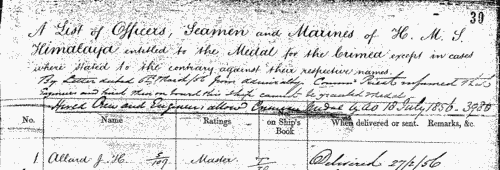 39
A List of Officers, Seamen and Marines of H. M. S
Himalaya entitled to the Medal for the Crimea except in cases
where stated to the contrary against their respective names.
By Letter dated March/56 from Admiralty informed that
Engineers and hired Men on board this Ship cannot be granted Medal
Hired Crew and Engineers allowed Medal 18 July 1856.
No. Name Ratings No. on Ship's Book When delivered or sent. Remarks, &c.
1 Allard J. H. Master Delivered 27/2/56